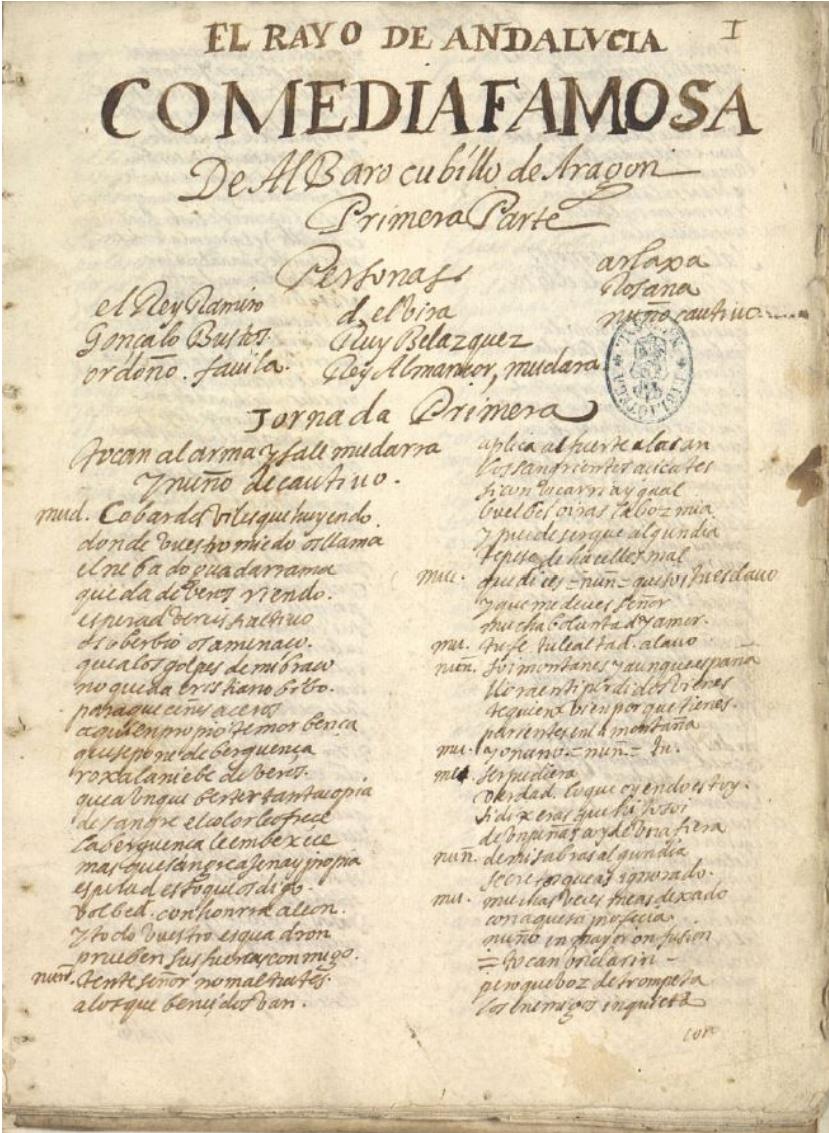 EL RAYO DE ANDALVCIA
I
COMEDIA FAMOSA
De AlBaro cubillo de Aragon
Primera Parte
Personas
el Rey Ramiro
Gonçalo Bustos.
ordoño. favila.
d. elbira
Ruy Belazquez
Rey Almançor, mudara
arlaxa
Rosana
nuño cautiuo
Jornada Primera
tocan al arma y sale mudarra
y nuño de cautiuo.
mud. Cobardes viles que huyendo
donde vuestro miedo os llama
el nebado guadarrama
queda de veros riendo.
esperad vereis
que a los golpes de mi braço
no queda cristiano bibo.
para que ceñis aceros
a quien propio temor bença
que se pone de berguença
roxa la niebe de veros.
que aunque berter tanta copia
de sangre el color le ofrece
la berguença
mas que sangre ajena y propia
esto que os digo.
bolbed. con honrra a leon.
y todo vuestro esquadron
prueben sus fuerças conmigo.
nuñ. tente señor no maltrates
a los que bencidos van.
aplica al fuerte alaçan
los sangrientos acicates
si con bicarria y qual
buelbes oiras la boz mia
y puede ser que algun dia
te pese de hacelles mal
mu. que dices = nuñ = que soi tu esclauo
y que me deues señor
mucha boluntad y amor.
mu. tu fe tu lealtad. alauo
nuñ. soi montañes y aunque españa
llora en ti perdidos bienes
te quiero bien porque tienes.
parientes en la montaña
mu. yo nuño. = nuñ = tu.
mu. ser pudiera
verdad. lo que oyendo estoy.
si dixeras que hijo soi
de un peñasco y de una fiera
nuñ. de mi sabras algun dia
secretos que as ignorado.
mu. muchas veces me as dexado
con aquesa profecia
nuño en mayor confusion
= tocan un clarin -
pero que boz de trompeta
los enemigos inquieta
con